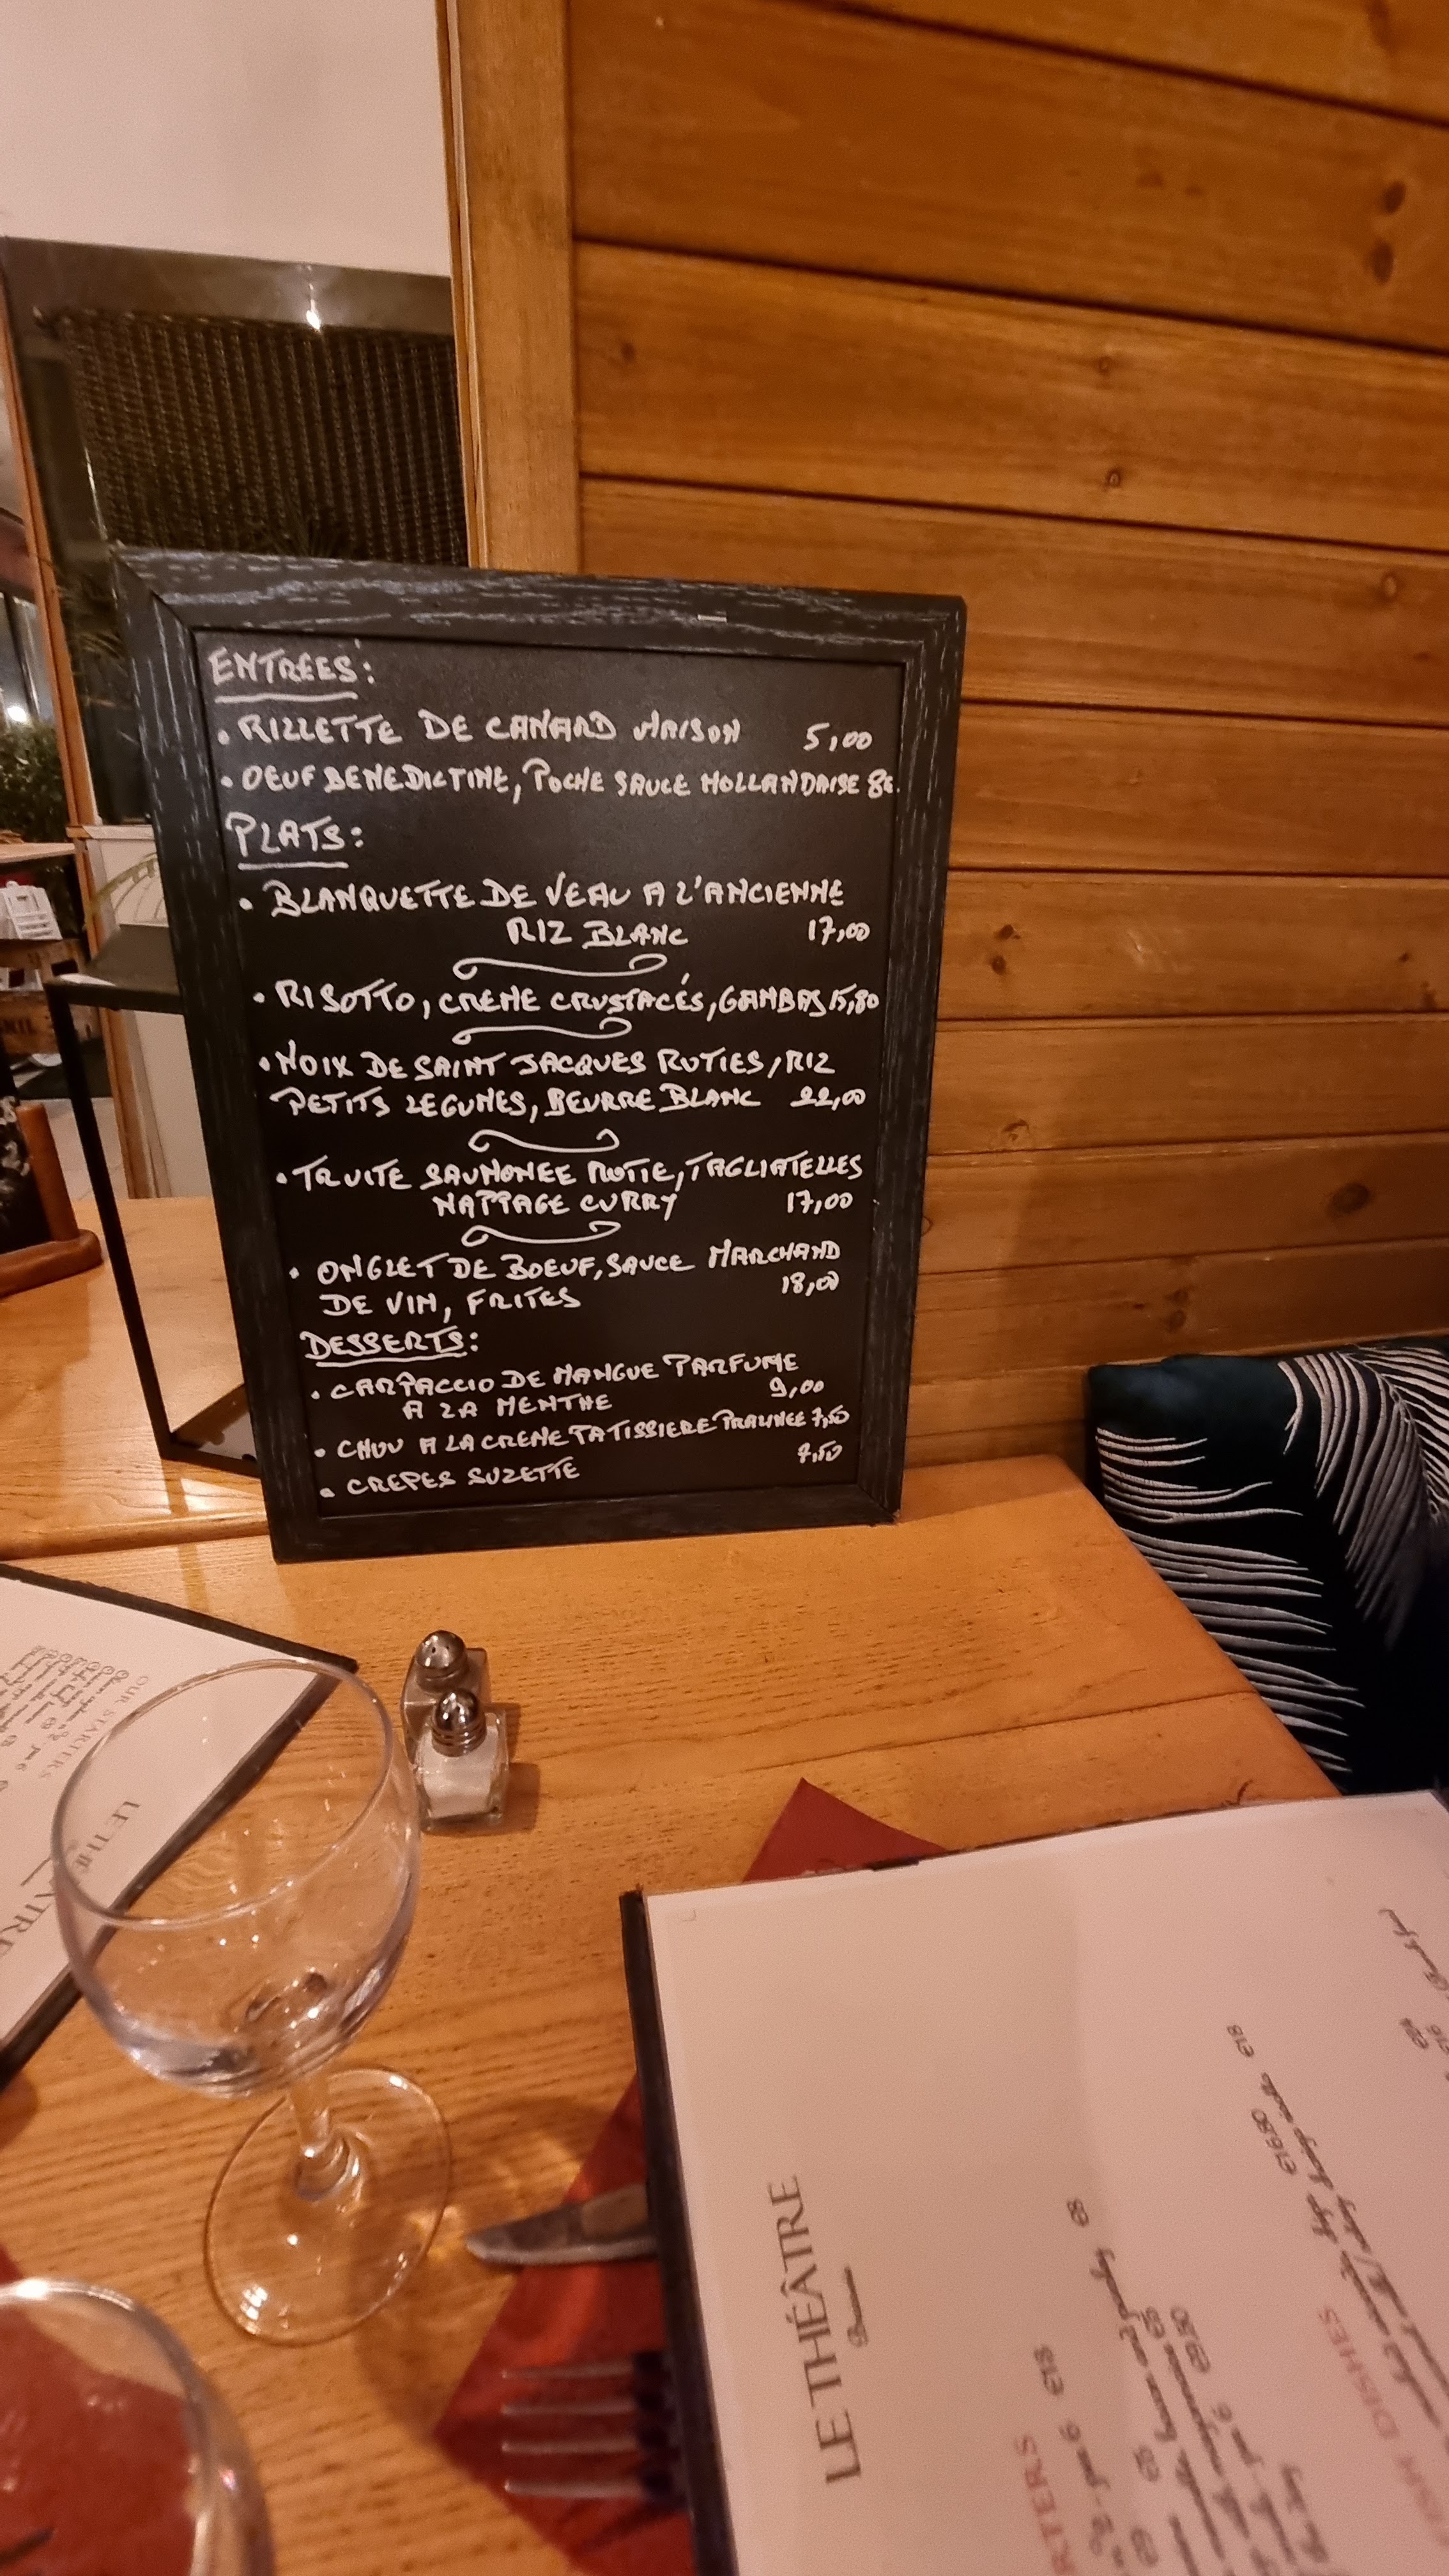 ENTREES:
• RILLETTE DE CANARD MAISON 5,00
• OEUF BENEDICTINE, POCHE SAUCE HOLLANDAISE 8€.
PLATS:
• BLANQUETTE DE VEAU A L'ANCIENNE
RIZ BLANC 17,00
• RISOTTO, CREME CRUSTACÉS, GAMBAS 15,80
• NOIX DE SAINT JACQUES ROTIES, RIZ
PETITS LEGUMES, BEURRE BLANC 22,00
• TRUITE SAUMONEE ROTIE, TAGLIATELLES
NAPPAGE CURRY 17,00
• ONGLET DE BOEUF, SAUCE MARCHAND
DE VIN, FRITES 18,00
DESSERTS:
• CARPACCIO DE MANGUE PARFUME
A LA MENTHE 9,00
• CHOU A LA CREME PATISSIERE PRALINEE 7,50
• CREPES SUZETTE 7,50
OUR STARTERS
LE THÉÂTRE
LE THÉÂTRE
€8
€18
€5
€9,50
€16,80
€18
DISHES